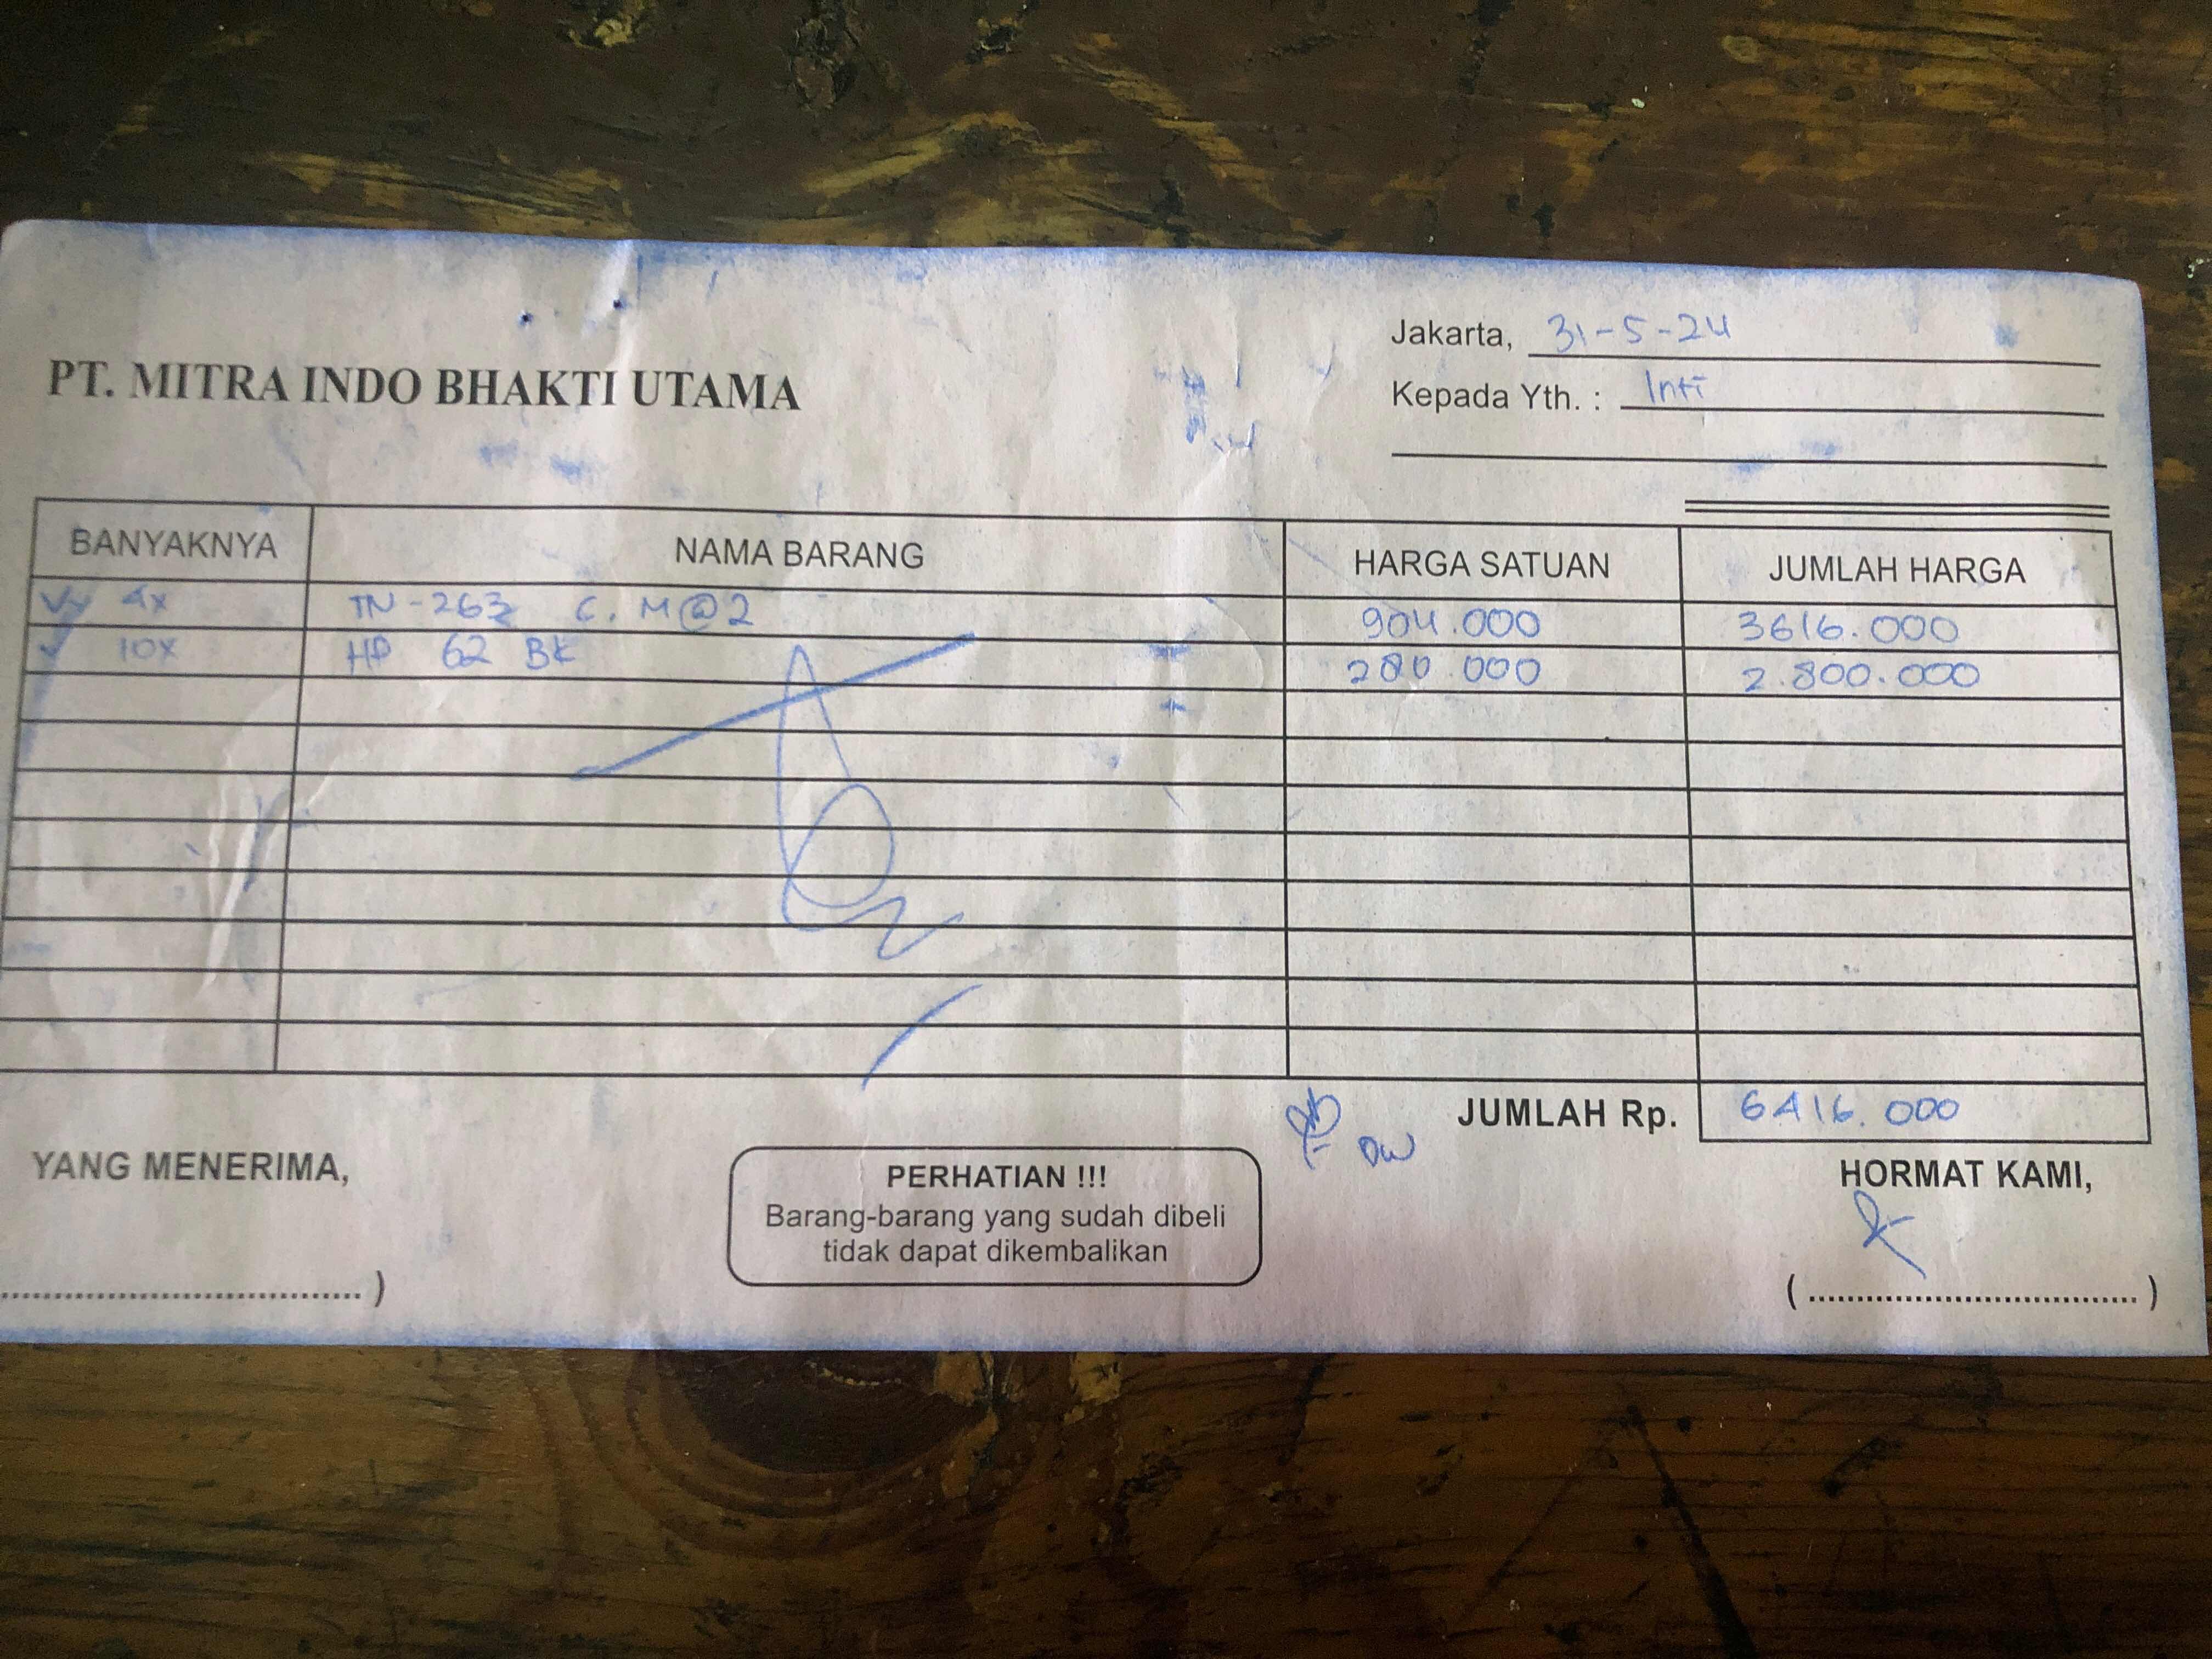 Jakarta, 31-5-24
PT. MITRA INDO BHAKTI UTAMA
Kepada Yth. : Inti
BANYAKNYA NAMA BARANG HARGA SATUAN JUMLAH HARGA
4x TN-263 C. M@2 904.000 3616.000
10x HP 62 BK 280.000 2.800.000
JUMLAH Rp. 6416.000
YANG MENERIMA,
PERHATIAN !!!
Barang-barang yang sudah dibeli
tidak dapat dikembalikan
HORMAT KAMI,